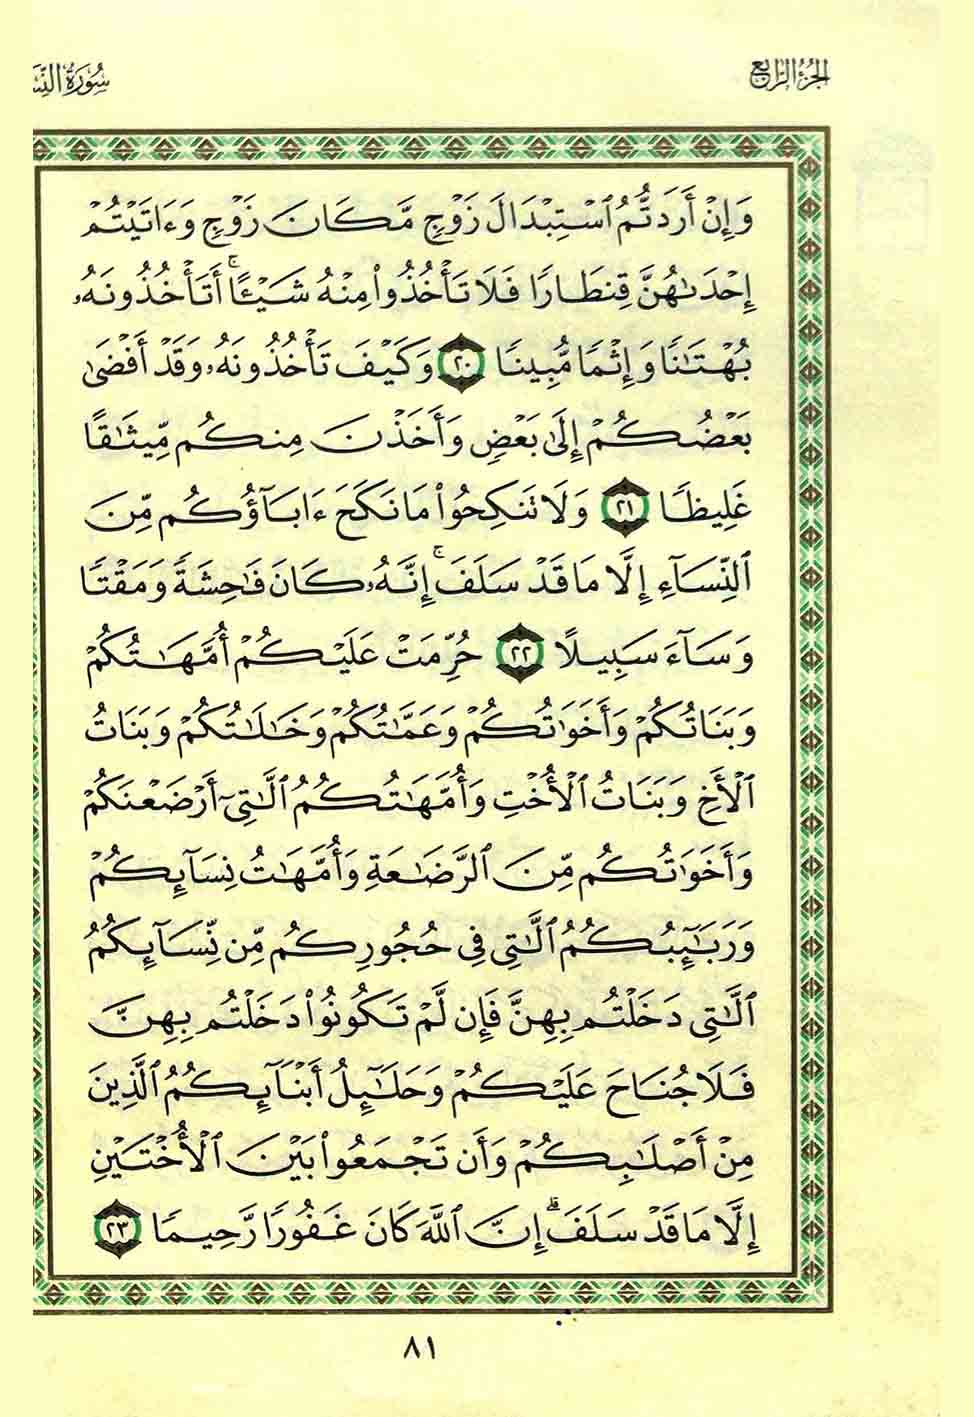 الجزء الرابع
سورة
وَإِنْ أَرَدتُّمُ ٱسْتِبْدَالَ زَوْجٍ مَّكَانَ زَوْجٍ وَءَاتَيْتُمْ
إِحْدَىٰهُنَّ قِنطَارًا فَلَا تَأْخُذُوا۟ مِنْهُ شَيْـًٔا ۚ أَتَأْخُذُونَهُۥ
بُهْتَـٰنًا وَإِثْمًا مُّبِينًا ٢٠ وَكَيْفَ تَأْخُذُونَهُۥ وَقَدْ أَفْضَىٰ
بَعْضُكُمْ إِلَىٰ بَعْضٍ وَأَخَذْنَ مِنكُم مِّيثَـٰقًا
غَلِيظًا ٢١ وَلَا تَنكِحُوا۟ مَا نَكَحَ ءَابَآؤُكُم مِّنَ
ٱلنِّسَآءِ إِلَّا مَا قَدْ سَلَفَ ۚ إِنَّهُۥ كَانَ فَـٰحِشَةً وَمَقْتًا
وَسَآءَ سَبِيلًا ٢٢ حُرِّمَتْ عَلَيْكُمْ أُمَّهَـٰتُكُمْ
وَبَنَاتُكُمْ وَأَخَوَٰتُكُمْ وَعَمَّـٰتُكُمْ وَخَـٰلَـٰتُكُمْ وَبَنَاتُ
ٱلْأَخِ وَبَنَاتُ ٱلْأُخْتِ وَأُمَّهَـٰتُكُمُ ٱلَّـٰتِىٓ أَرْضَعْنَكُمْ
وَأَخَوَٰتُكُم مِّنَ ٱلرَّضَـٰعَةِ وَأُمَّهَـٰتُ نِسَآئِكُمْ
وَرَبَـٰٓئِبُكُمُ ٱلَّـٰتِى فِى حُجُورِكُم مِّن نِّسَآئِكُمُ
ٱلَّـٰتِى دَخَلْتُم بِهِنَّ فَإِن لَّمْ تَكُونُوا۟ دَخَلْتُم بِهِنَّ
فَلَا جُنَاحَ عَلَيْكُمْ وَحَلَـٰٓئِلُ أَبْنَآئِكُمُ ٱلَّذِينَ
مِنْ أَصْلَـٰبِكُمْ وَأَن تَجْمَعُوا۟ بَيْنَ ٱلْأُخْتَيْنِ
إِلَّا مَا قَدْ سَلَفَ ۗ إِنَّ ٱللَّهَ كَانَ غَفُورًا رَّحِيمًا ٢٣
٨١